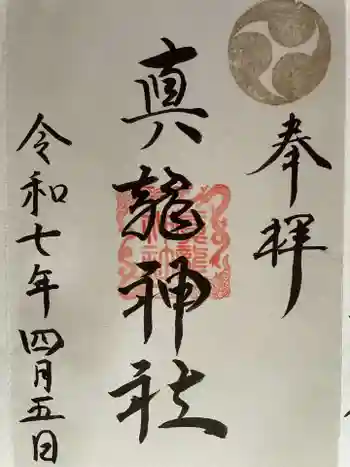 奉拝
真龍神社
令和七年四月五日